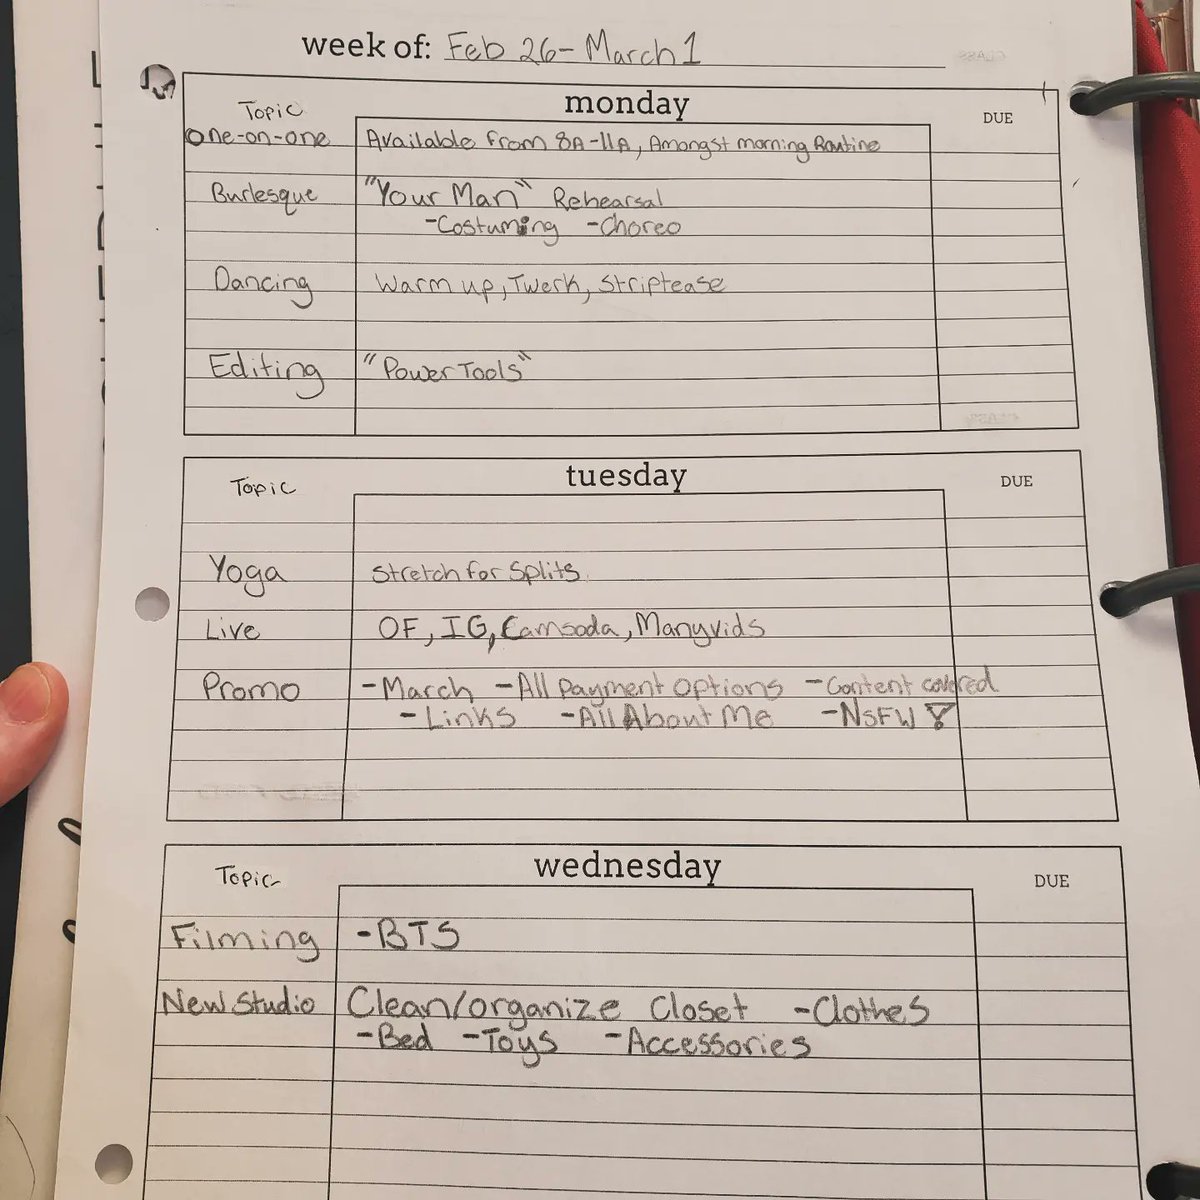 week of: Feb 26-March 1
monday
Topic
DUE
One-on-one Available from 8A-11A, Amongst morning Routine
Burlesque "Your Man" Rehearsal
-Costuming -Choreo
Dancing Warm up, Twerk, Striptease
Editing "Power Tools"
tuesday
Topic
DUE
Yoga Stretch for Splits
Live OF, IG, Camsoda, Manyvids
Promo -March -All payment options -Content covered
-Links -All About Me -NSFW
wednesday
Topic
DUE
Filming -BTS
New Studio Clean/organize Closet -Clothes
-Bed -Toys -Accessories